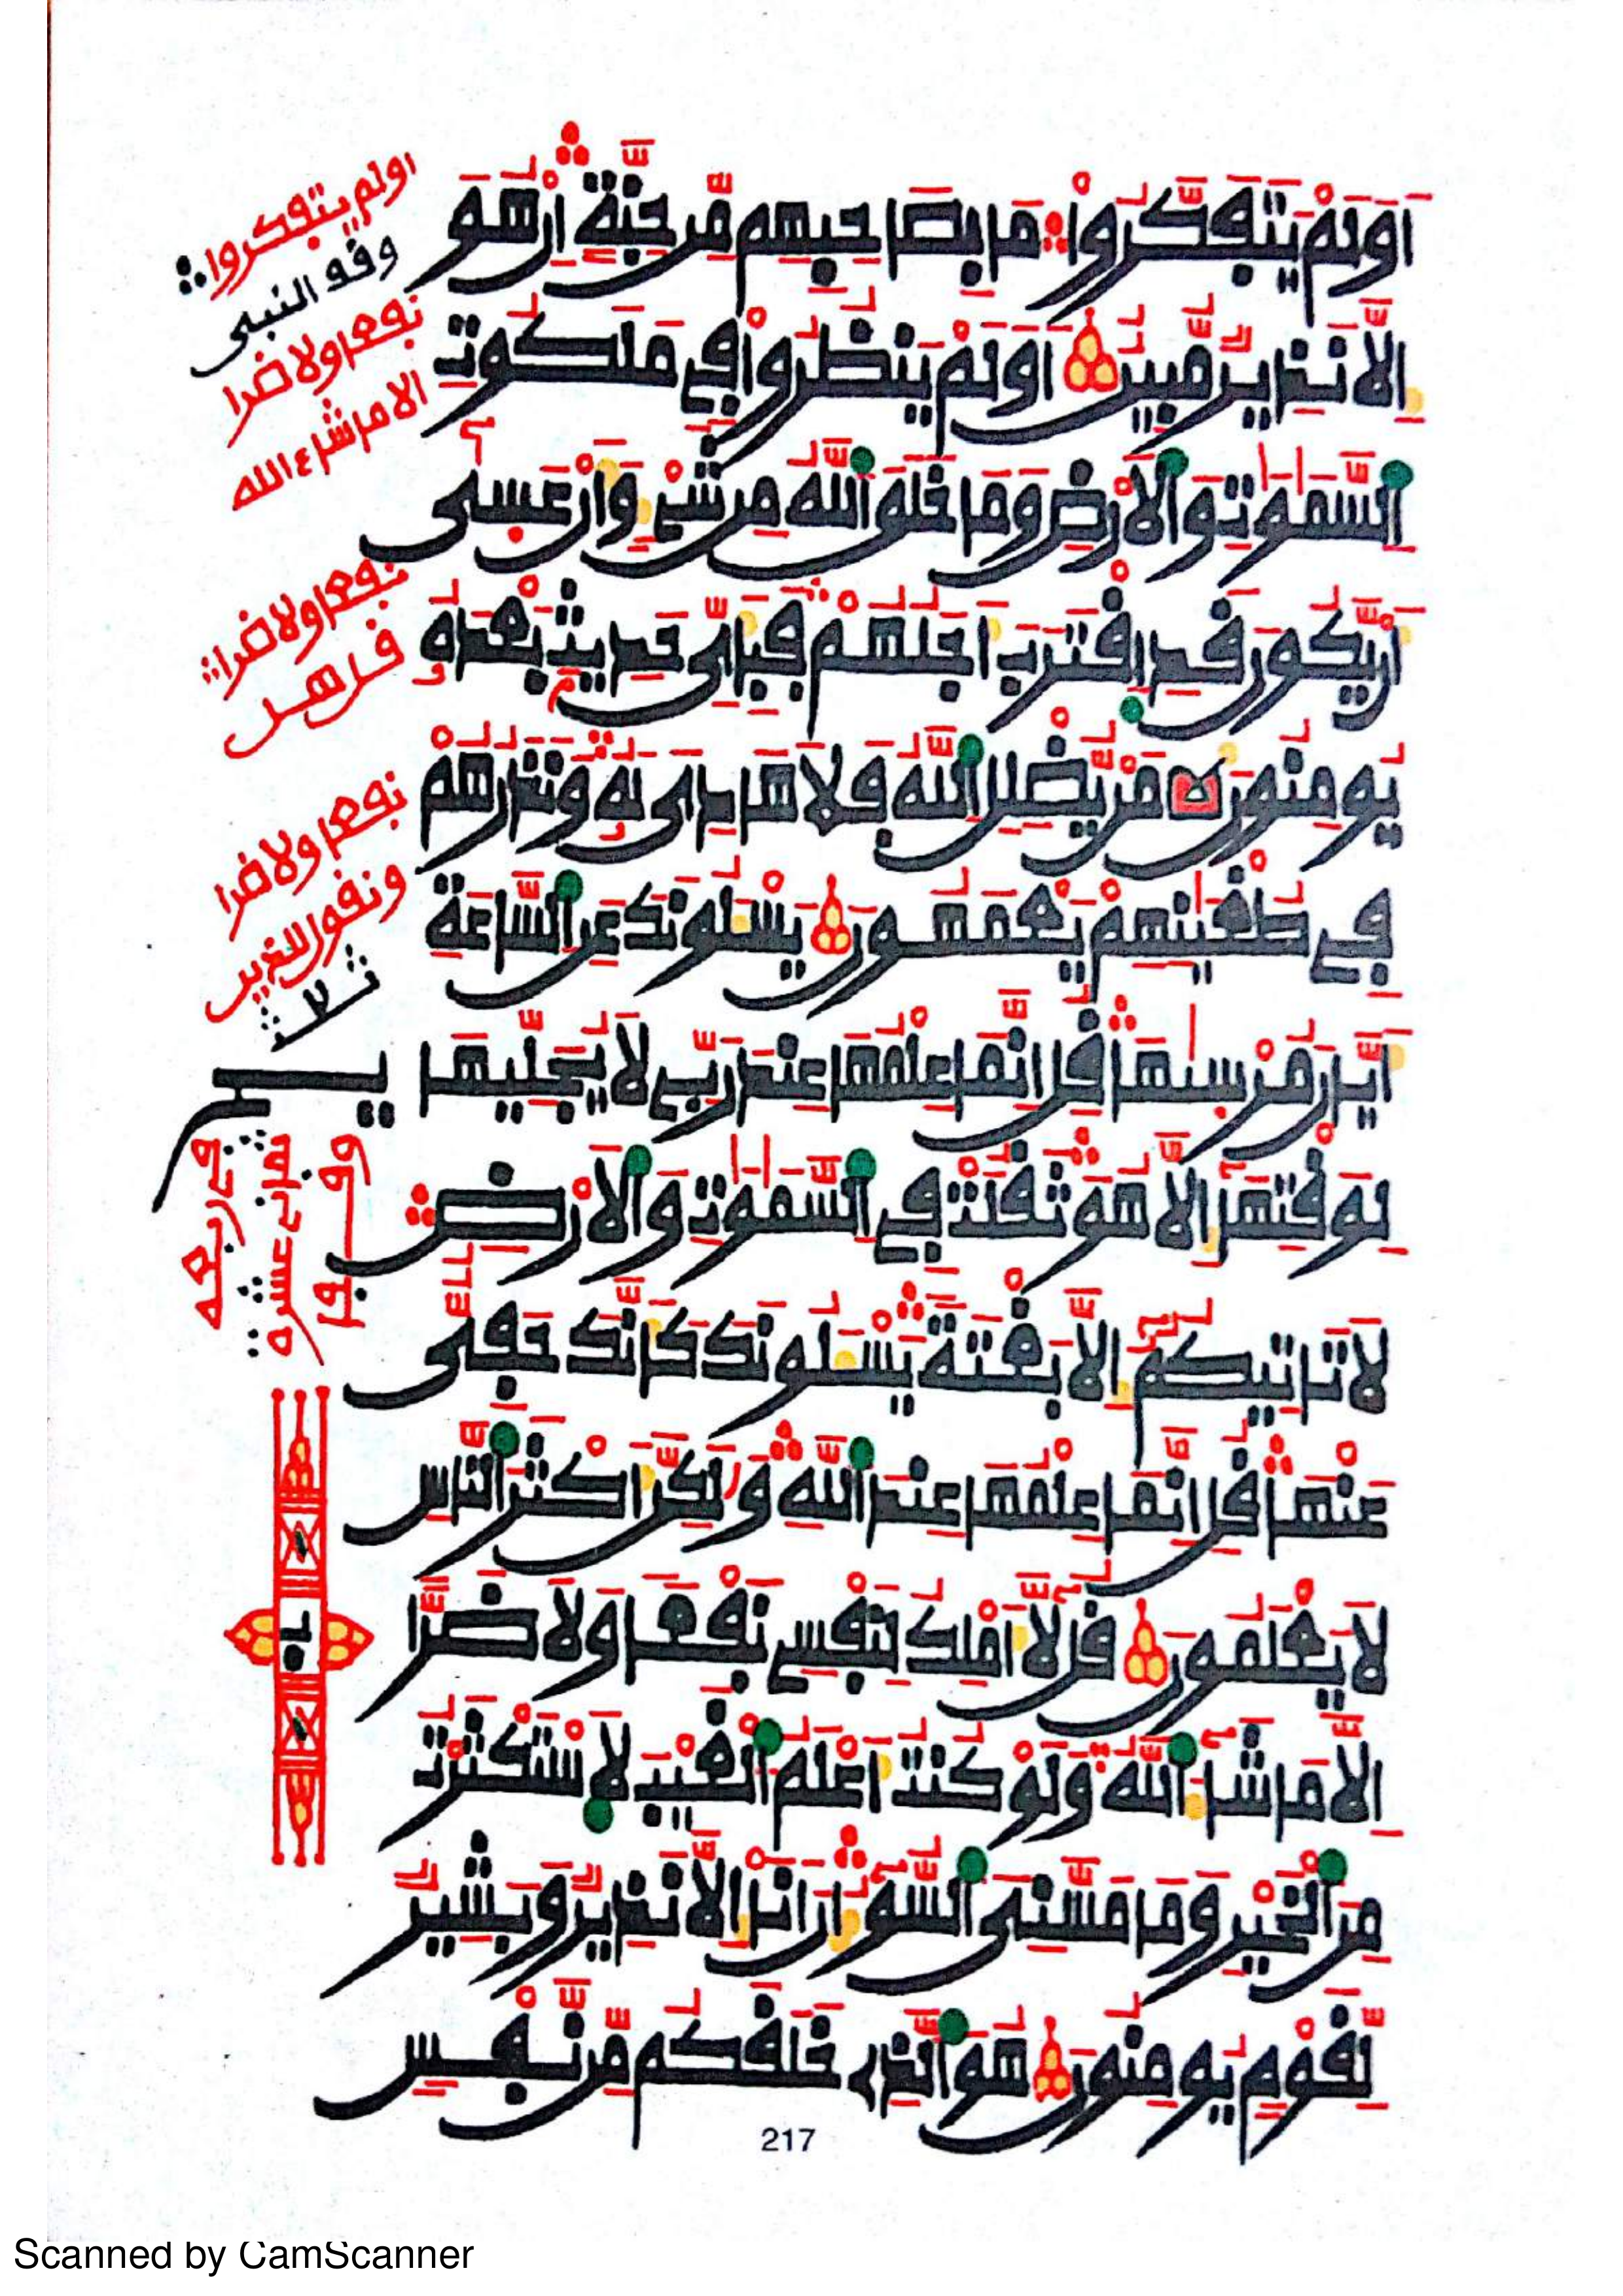 اولم يتفكروا ما بصاحبهم من جنة ان هو
الا نذير مبين اولم ينظروا في ملكوت
السموت والارض وما خلق الله من شيء وان عسى
ان يكون قد اقترب اجلهم فبأي حديث بعده
يومنون من يضلل الله فلا هادي له ونذرهم
في طغينهم يعمهون يسلونك عن الساعة
ايان مرسيها قل انما علمها عند ربي لا يجليها
لوقتها الا هو ثقلت في السموت والارض
لا تاتيكم الا بغتة يسلونك كانك حفي
عنها قل انما علمها عند الله ولكن اكثر الناس
لا يعلمون قل لا املك لنفسي نفعا ولا ضرا
الا ما شاء الله ولو كنت اعلم الغيب لاستكثرت
من الخير وما مسني السوء ان انا الا نذير وبشير
لقوم يومنون هو الذي خلقكم من نفس
اولم يتفكروا
وقه النبي
نفعا ولا ضرا
الا ما شاء الله
نفعا ولا ضرا
قد هو
نفعا ولا ضرا
ونقول للغير
217
Scanned by CamScanner